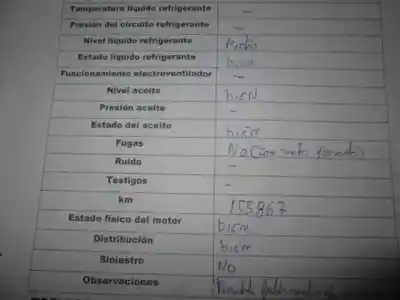 Temperatura líquido refrigerante –
Presión del circuito refrigerante –
Nivel líquido refrigerante Medio
Estado líquido refrigerante bien
Funcionamiento electroventilador –
Nivel aceite bien
Presión aceite –
Estado del aceite bien
Fugas No (con motor parado)
Ruido –
Testigos –
km 155867
Estado físico del motor bien
Distribución bien
Siniestro No
Observaciones